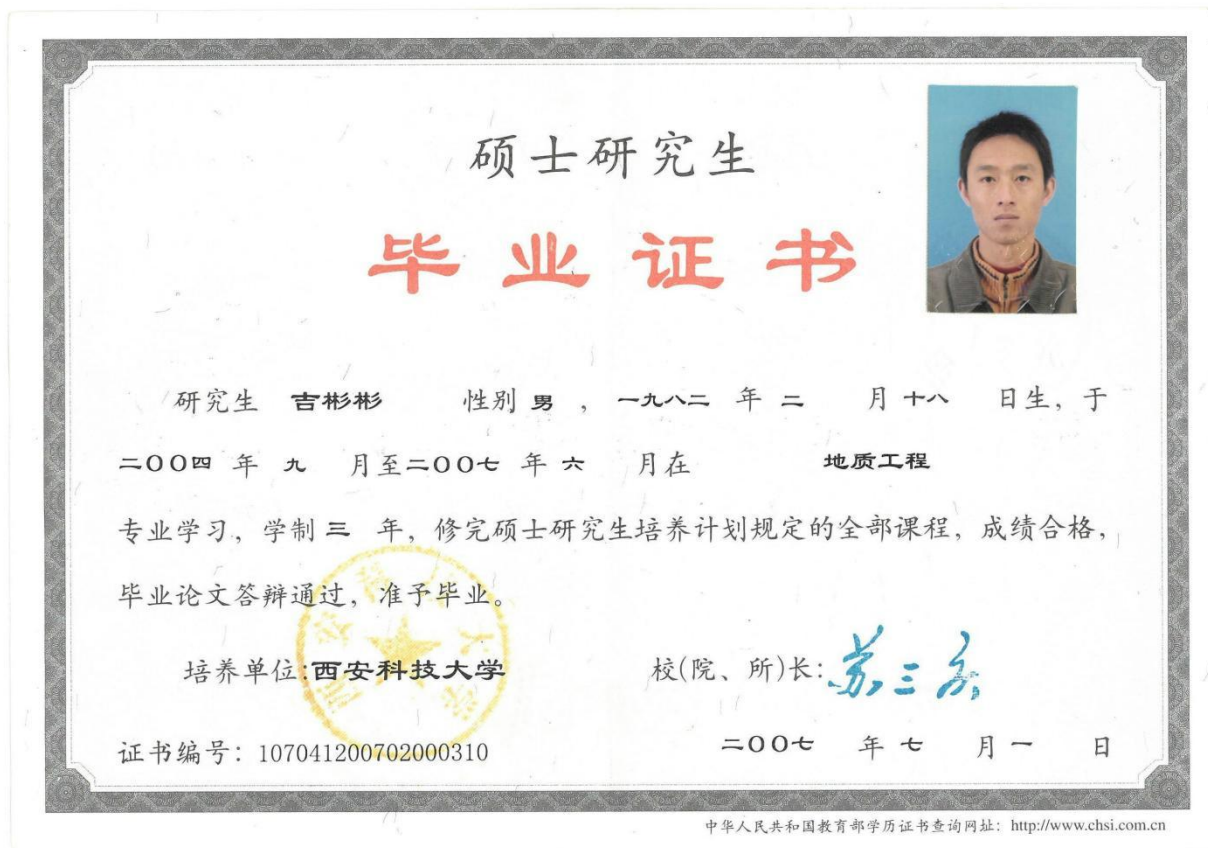 硕士研究生
毕业证书
研究生 吉彬彬 性别 男 , 一九八二 年 二 月 十八 日生, 于
二〇〇四 年 九 月至 二〇〇七 年 六 月在 地质工程
专业学习, 学制 三 年, 修完硕士研究生培养计划规定的全部课程, 成绩合格,
毕业论文答辩通过, 准予毕业。
培养单位:西安科技大学 校(院、所)长: 苏三庆
证书编号: 107041200702000310 二〇〇七 年 七 月 一 日
中华人民共和国教育部学历证书查询网址: http://www.chsi.com.cn